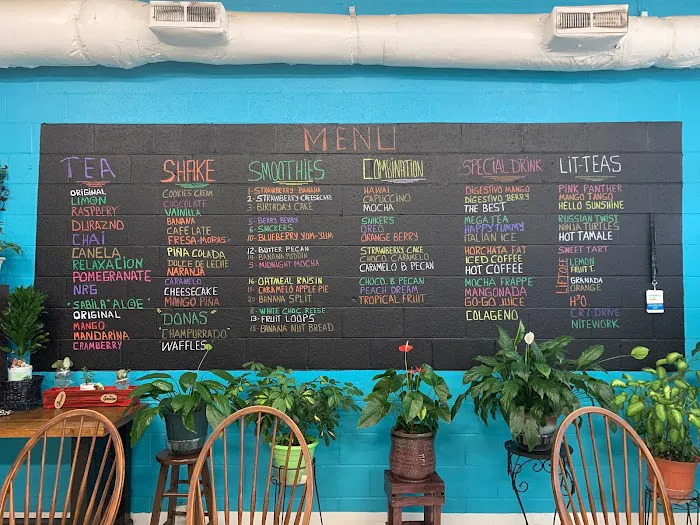 MENU
TEA
ORIGINAL
LIMON
RASPBERY
DURAZNO
CHAI
CANELA
RELAXACION
POMEGRANATE
NRG
"SABILA" ALOE"
ORIGINAL
MANGO
MANDARINA
CRAMBERRY
SHAKE
COOKIES CREAM
CHOCOLATE
VAINILLA
BANANA
CAFE LATE
FRESA-MORAS
PINA COLADA
DULCE DE LECHE
NARANJA
CARAMELO
CHEESECAKE
MANGO PINA
"DONAS"
"CHAMPURRADO"
WAFFLES
SMOOTHIES
1- STRAWBERRY BANANA
2- STRAWBERRY CHEESECAKE
3- BIRTHDAY CAKE
5- BERRY BERRY
6- SNICKERS
10- BLUEBERRY YUM-YUM
12- BUTTER PECAN
BANANA PUDDIN
9- MIDNIGHT MOCHA
16- OATMEAL RAISIN
CARAMELO APPLE PIE
20- BANANA SPLIT
8- WHITE CHOC. REESE
13- FRUIT LOOPS
15- BANANA NUT BREAD
COMBINATION
HAWAI
CAPUCCINO
MOCHA
SNIKERS
OREO
ORANGE BERRY
STRAWBERRY CAKE
CHOCO. CARAMELO
CARAMELO B. PECAN
CHOCO. B. PECAN
PEACH DREAM
TROPICAL FRUIT
SPECIAL DRINK
DIGESTIVO MANGO
DIGESTIVO BERRY
THE BEST
MEGA TEA
HAPPY TUMMY
ITALIAN ICE
HORCHATA FAT
ICED COFFEE
HOT COFFEE
MOCHA FRAPPE
MANGONADA
GO-GO JUICE
COLAGENO
LIT-TEAS
PINK PANTHER
MANGO TANGO
HELLO SUNSHINE
RUSSIAN TWIST
NINJA TURTLES
HOT TAMALE
SWEET TART
LEMON
FRUIT T.
GRANADA
ORANGE
H³O
CR7 DRIVE
NITEWORK